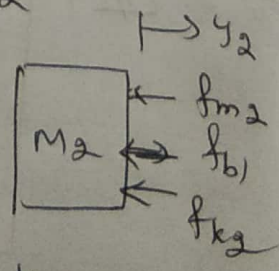 y2
fm2
M2
fb1
fk2